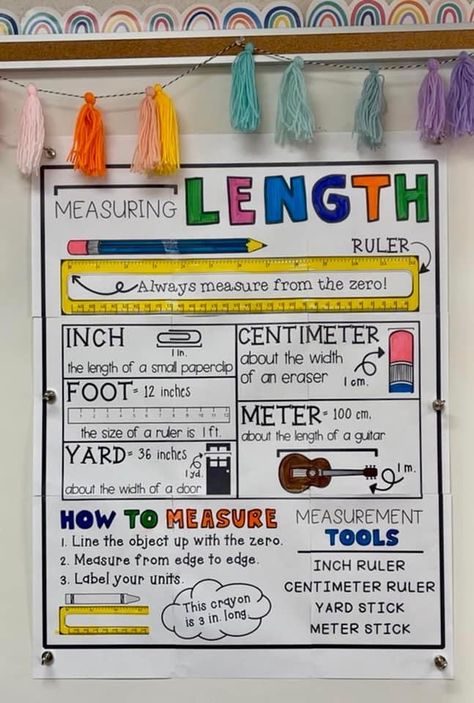 MEASURING LENGTH
RULER
Always measure from the zero!
INCH
1 in.
the length of a small paperclip
CENTIMETER
about the width
of an eraser
1 cm.
FOOT = 12 inches
1 2 3 4 5 6 7 8 9 10 11 12
the size of a ruler is 1 ft.
METER = 100 cm.
about the length of a guitar
1 m.
YARD = 36 inches
1 yd.
about the width of a door
HOW TO MEASURE
1. Line the object up with the zero.
2. Measure from edge to edge.
3. Label your units.
This crayon
is 3 in. long.
MEASUREMENT
TOOLS
INCH RULER
CENTIMETER RULER
YARD STICK
METER STICK